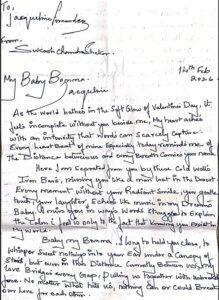 To,
Jacqueline Fernandez
From
Sukash Chandrashekar
14th Feb
2026
My Baby Bomma
Jacqueline
As the world bathes in the Soft Glow of Valentine Day, it
feels incomplete without you beside me, My heart aches
with an intensity that words can scarcely Capture.
Every heart Beat of mine Especially today reminds me of
the Distance between us and every Breath Carries your name
Here I am Separated from you by these Cold walls
Iron Bars, missing you like a man lost in the Desert
Every moment without your Radiant Smile, your gentle
touch your laughter, Echoes like music in my Dreams
Baby, I miss you in ways words Struggle to Explain
the Calm I feel is only to the fact that knowing you Exist in
my world.
Baby my Bomma, I long to hold you close, to
Whisper Sweet nothings in your Ear under a Canopy of
Stars, but even in this Debacle Currently Between us, my
love Bridges every Gap, Pulling us Together with
no matter What life hits us, nothing can or Could Break
our here for each other.